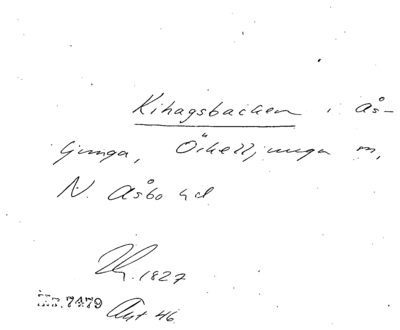 Kihagsbacken i Ås-
ljunga, Örkelljunga sn,
N. Åsbo hd
1827
7479 Ant 46